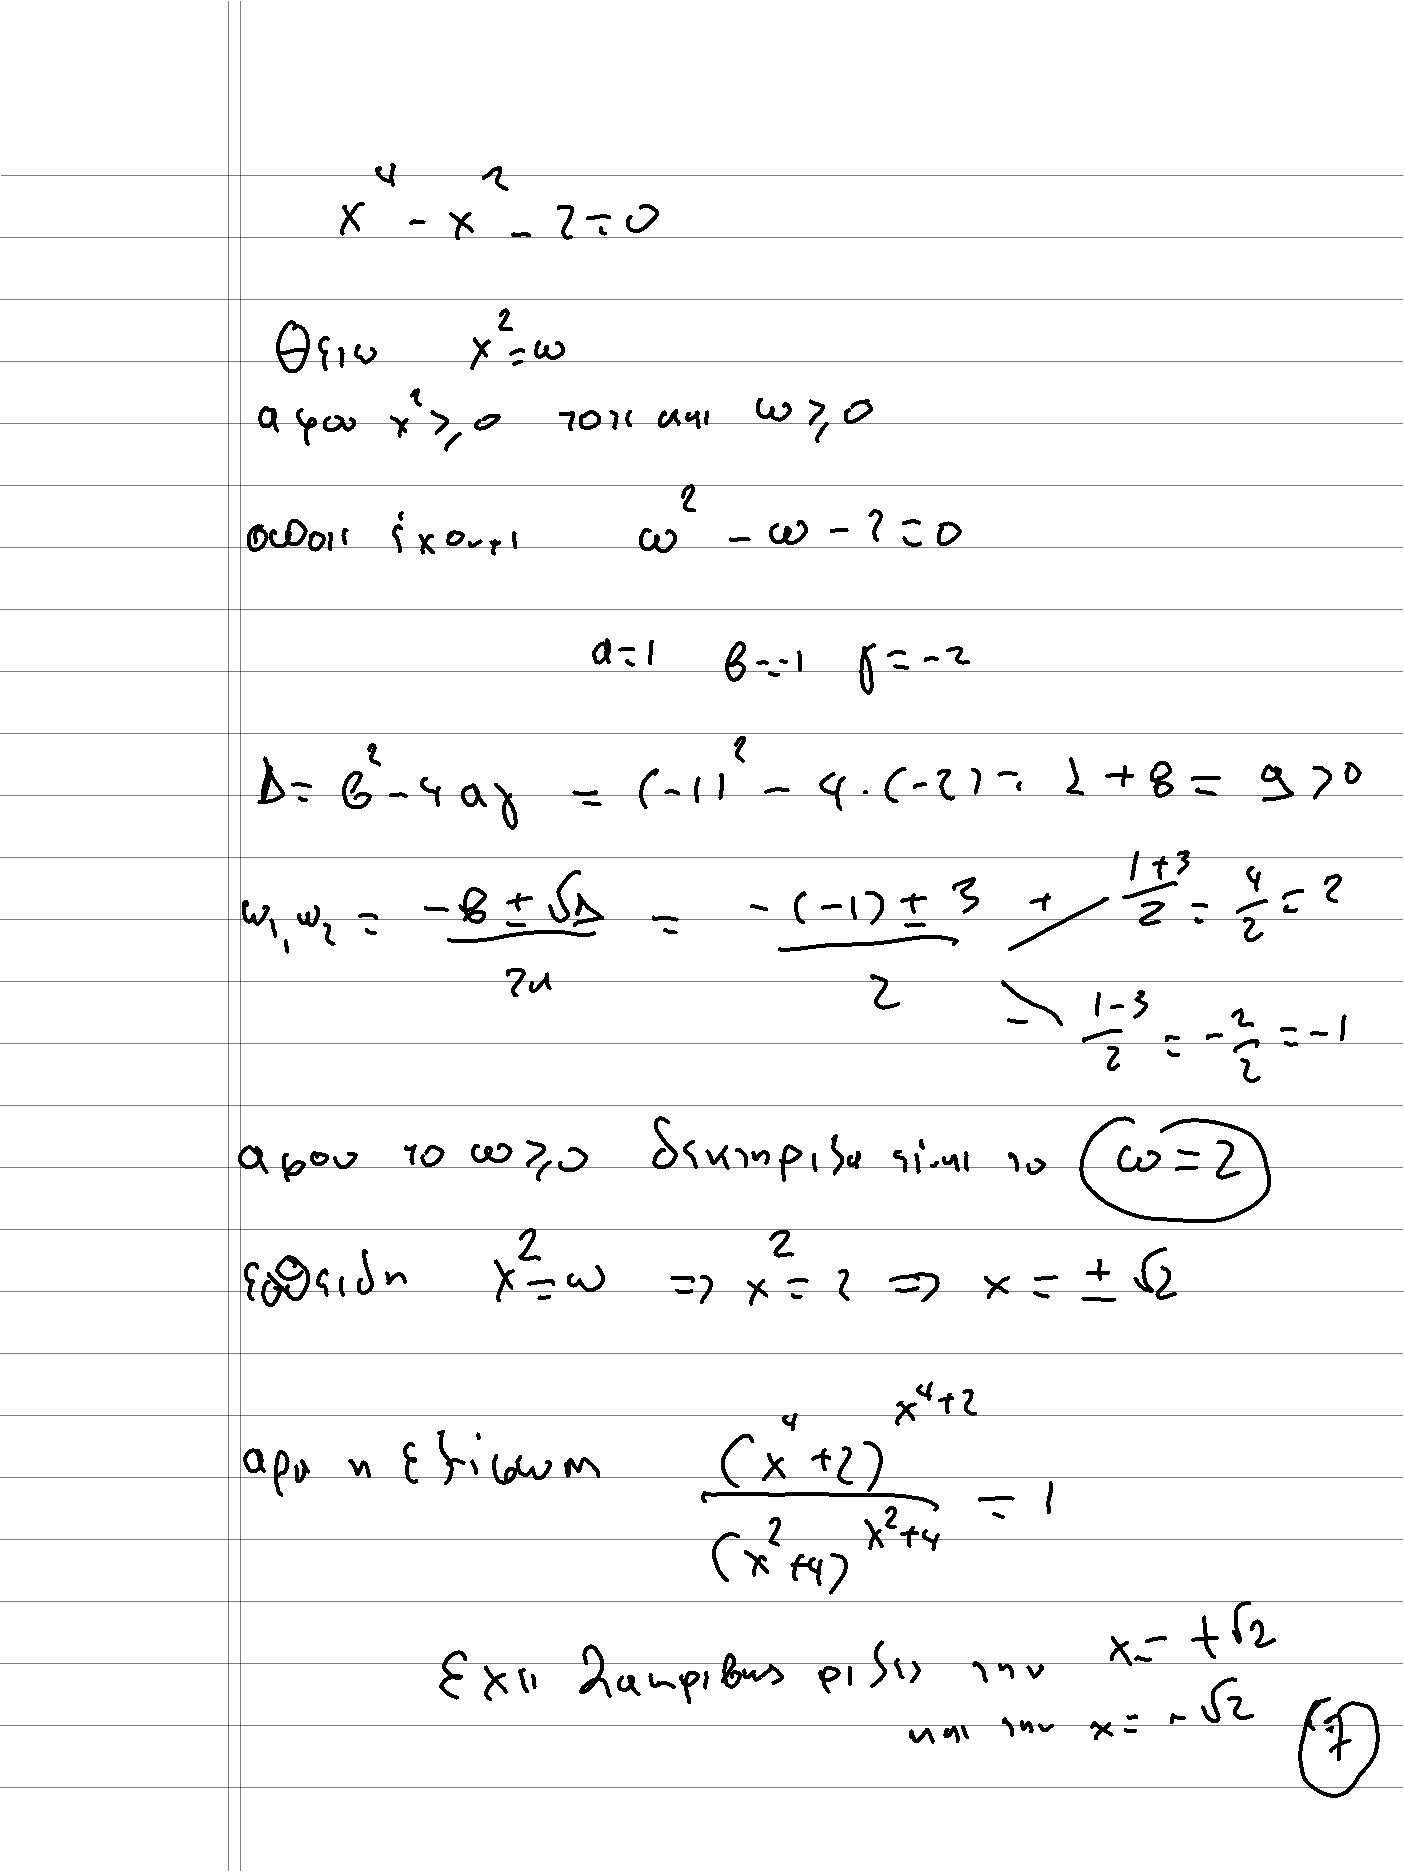 x⁴ - x² - 2 = 0
Θετω x² = ω
αφου x² ≥ 0 τοτε και ω ≥ 0
οποτε έχουμε ω² - ω - 2 = 0
α=1 β=-1 γ=-2
Δ = β² - 4αγ = (-1)² - 4·(-2) = 1 + 8 = 9 > 0
ω₁, ω₂ = (-β ± √Δ)/2α = (-(-1) ± 3)/2 + (1+3)/2 = 4/2 = 2
- (1-3)/2 = -2/2 = -1
αφου το ω ≥ 0 δεκτη ριζα είναι το ω = 2
επειδη x² = ω => x² = 2 => x = ± √2
αρα η εξίσωση (x⁴+2)^(x⁴+2) / (x²+4)^(x²+4) = 1
Εχει 2 ακριβως ριζες την x = +√2
και την x = -√2
7